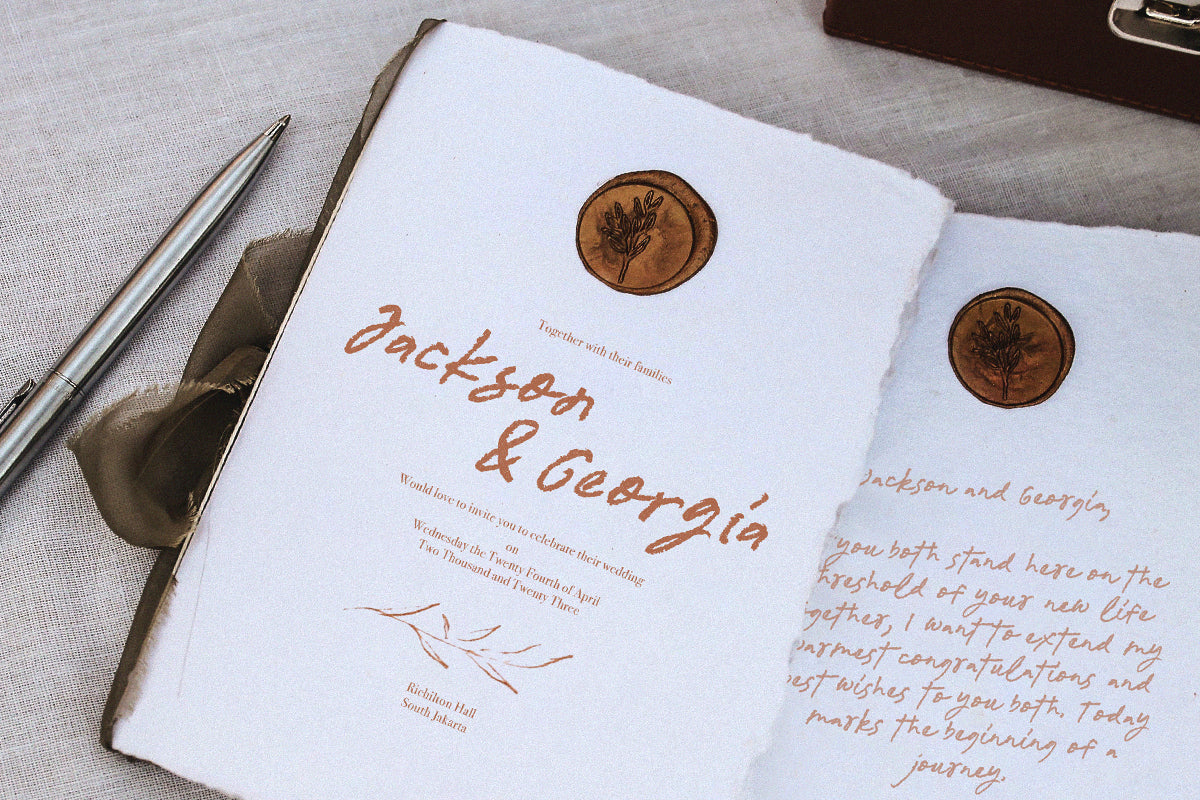 Together with their families
Jackson
& Georgia
Would love to invite you to celebrate their wedding
on
Wednesday the Twenty Fourth of April
Two Thousand and Twenty Three
Richilton Hall
South Jakarta
Jackson and Georgia,
you both stand here on the
threshold of your new life
together, I want to extend my
warmest congratulations and
best wishes to you both. Today
marks the beginning of a
journey.